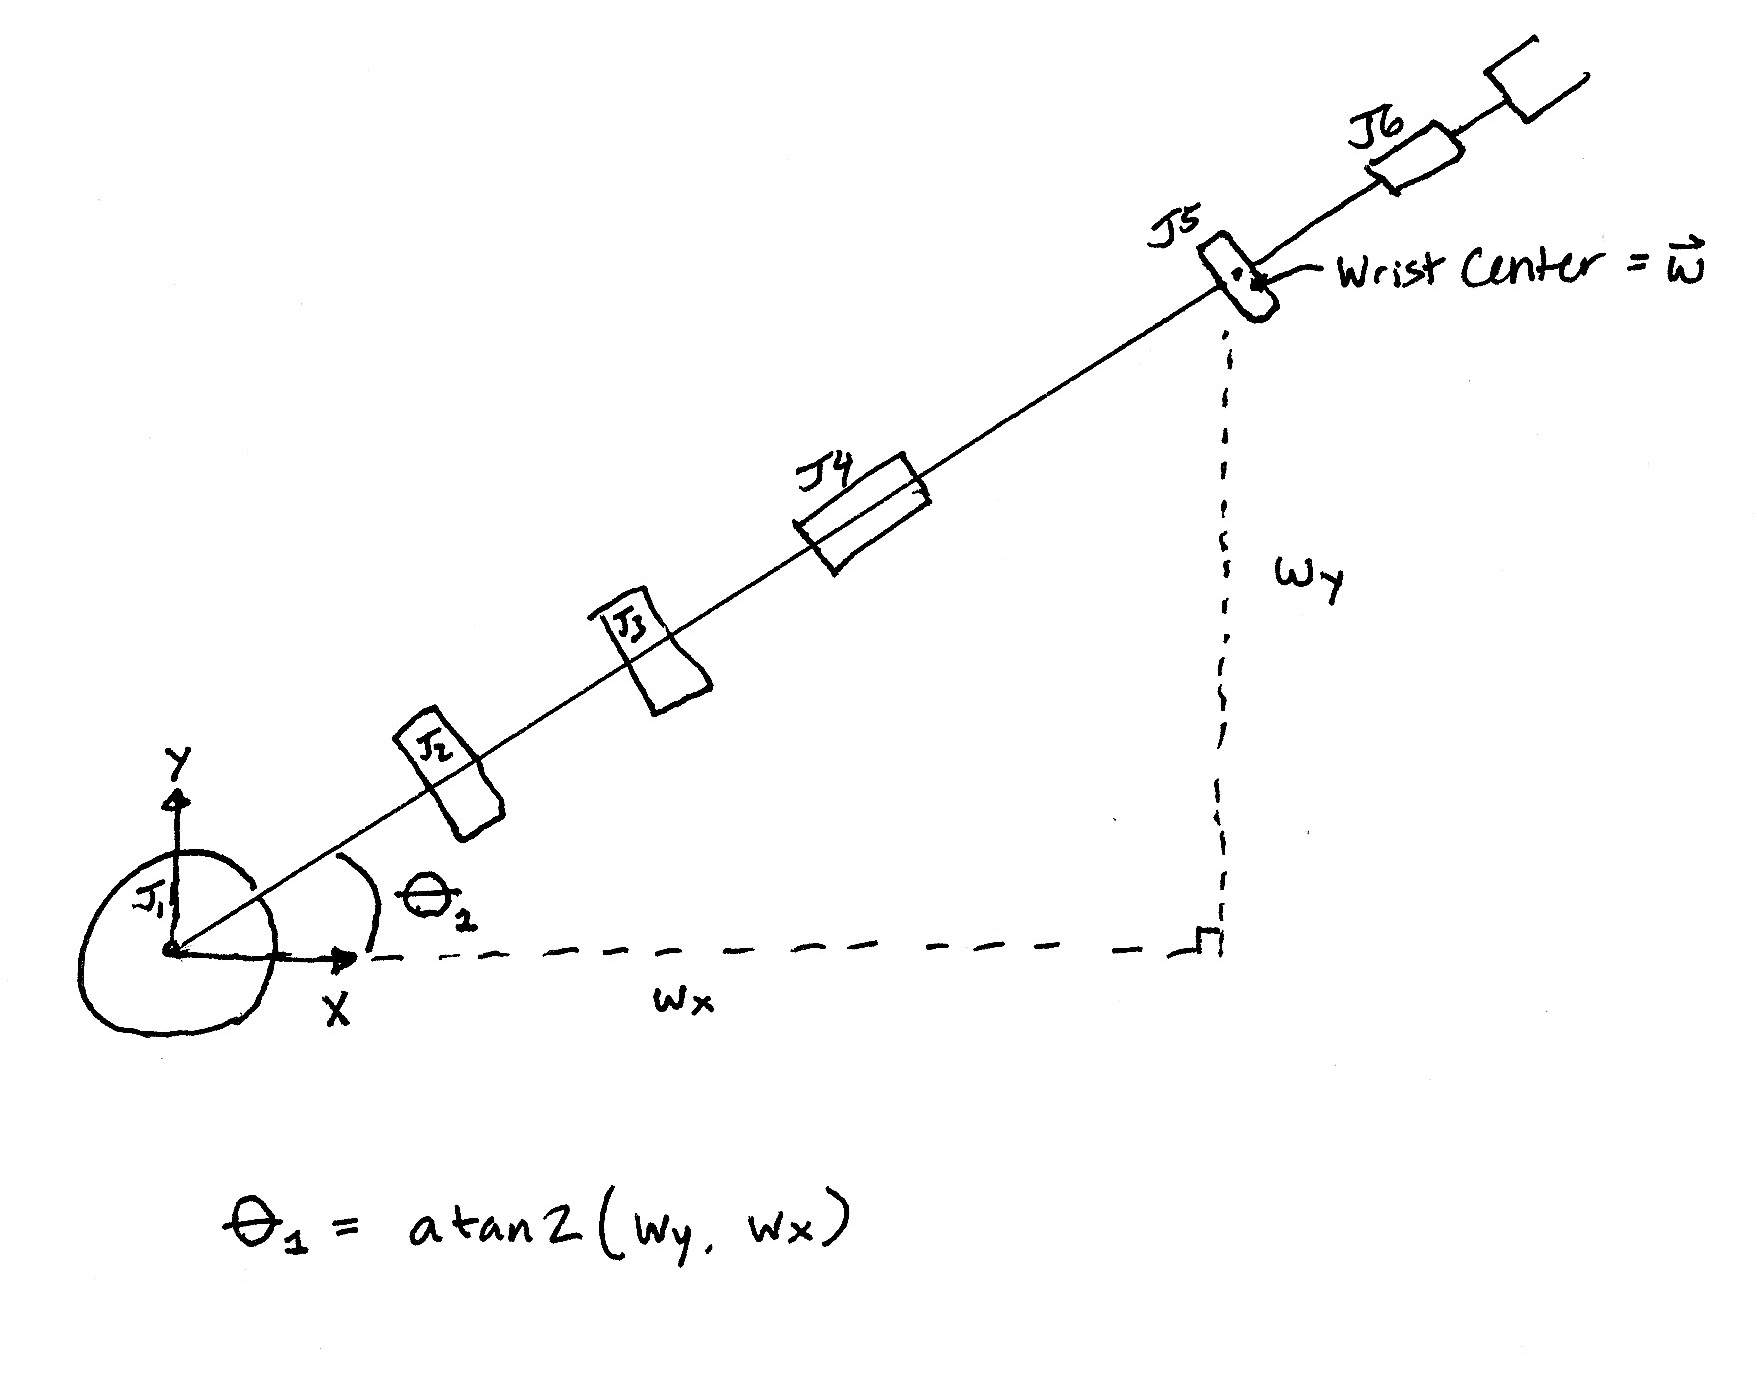 J6
J5
Wrist Center = w⃗
J4
wy
J3
J2
Y
J1
θ1
X
wx
θ1 = atan2(wy, wx)